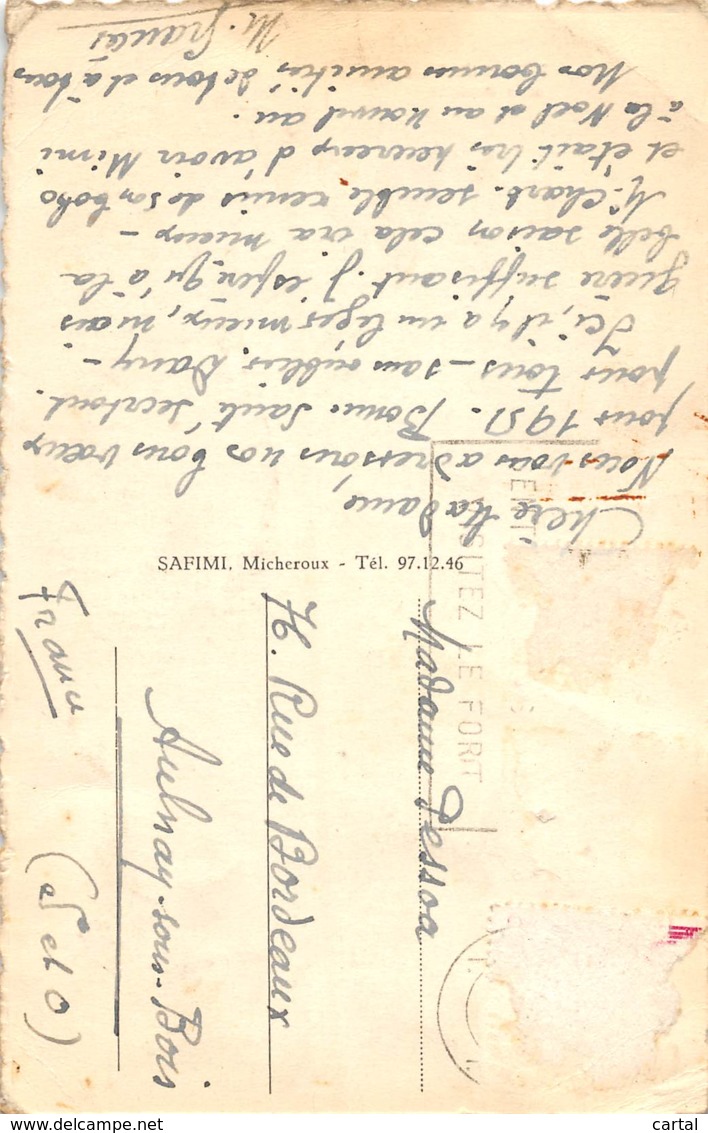 Chère Madame,
Nous vous adressons nos bons vœux
pour 1951. Bonne Santé surtout.
pour tous – sans oublier Dany –
Ici, il y a un léger mieux, mais
guère suffisant. J'espère qu'à la
belle saison cela ira mieux –
M. Charb. semble remis de son bobo
et était très heureux d'avoir Mimi
à la Noël et au Nouvel an.
Nos bonnes amitiés de tous et à tous
SAFIMI. Micheroux - Tél. 97.12.46
VISITEZ LE FORT
Madame Pessoa
76. Rue de Bordeaux
Aulnay-sous-Bois
(S et O)
France
cartal